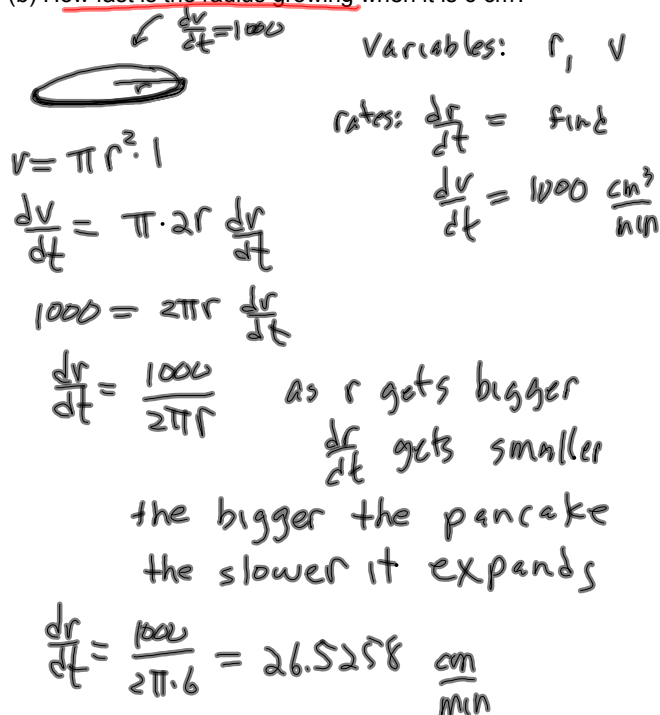 (b) How fast is the radius growing when it is 6 cm?
dv/dt = 1000
Variables: r, V
r
rates: dr/dt = find
V = πr²·1
dv/dt = 1000 cm³/min
dv/dt = π·2r dr/dt
1000 = 2πr dr/dt
dr/dt = 1000/2πr as r gets bigger
dr/dt gets smaller
the bigger the pancake
the slower it expands
dr/dt = 1000/2π·6 = 26.5258 cm/min